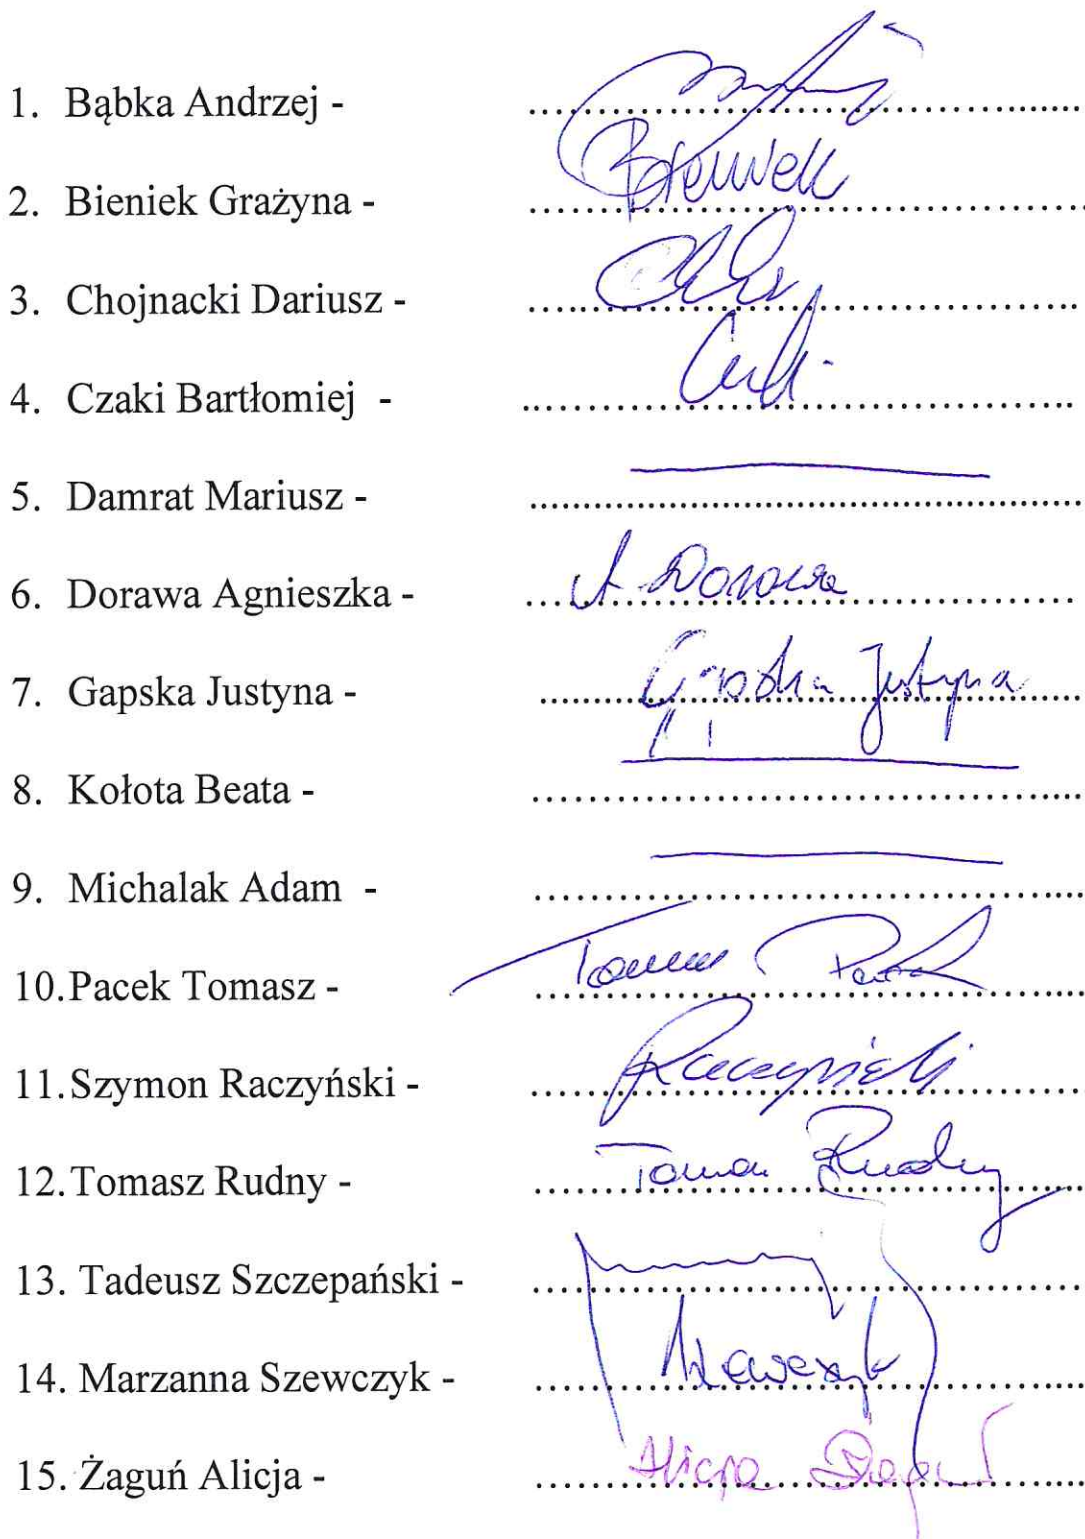 1. Bąbka Andrzej - ....................
2. Bieniek Grażyna - ....................
3. Chojnacki Dariusz - ....................
4. Czaki Bartłomiej - ....................
5. Damrat Mariusz - ....................
6. Dorawa Agnieszka - .................... A Dorawa
7. Gapska Justyna - .................... Gapska Justyna
8. Kołota Beata - ....................
9. Michalak Adam - ....................
10. Pacek Tomasz - .................... Tomasz Pacek
11. Szymon Raczyński - .................... Raczyński
12. Tomasz Rudny - .................... Tomasz Rudny
13. Tadeusz Szczepański - ....................
14. Marzanna Szewczyk - .................... Szewczyk
15. Żaguń Alicja - .................... Alicja Żaguń